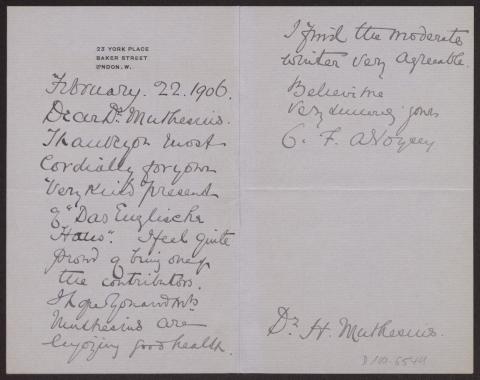 23 YORK PLACE
BAKER STREET
LONDON. W.
February. 22. 1906.
Dear Dr. Muthesius.
Thank you most
Cordially for your
very kind present
of "Das Englische
Haus". I feel quite
proud of being one of
the contributors.
I hope you and Mrs
Muthesius are
enjoying good health.
I find the moderate
winter very agreeable.
Believe me
very sincerely yours
C. F. A Voysey
Dr. H. Muthesius.